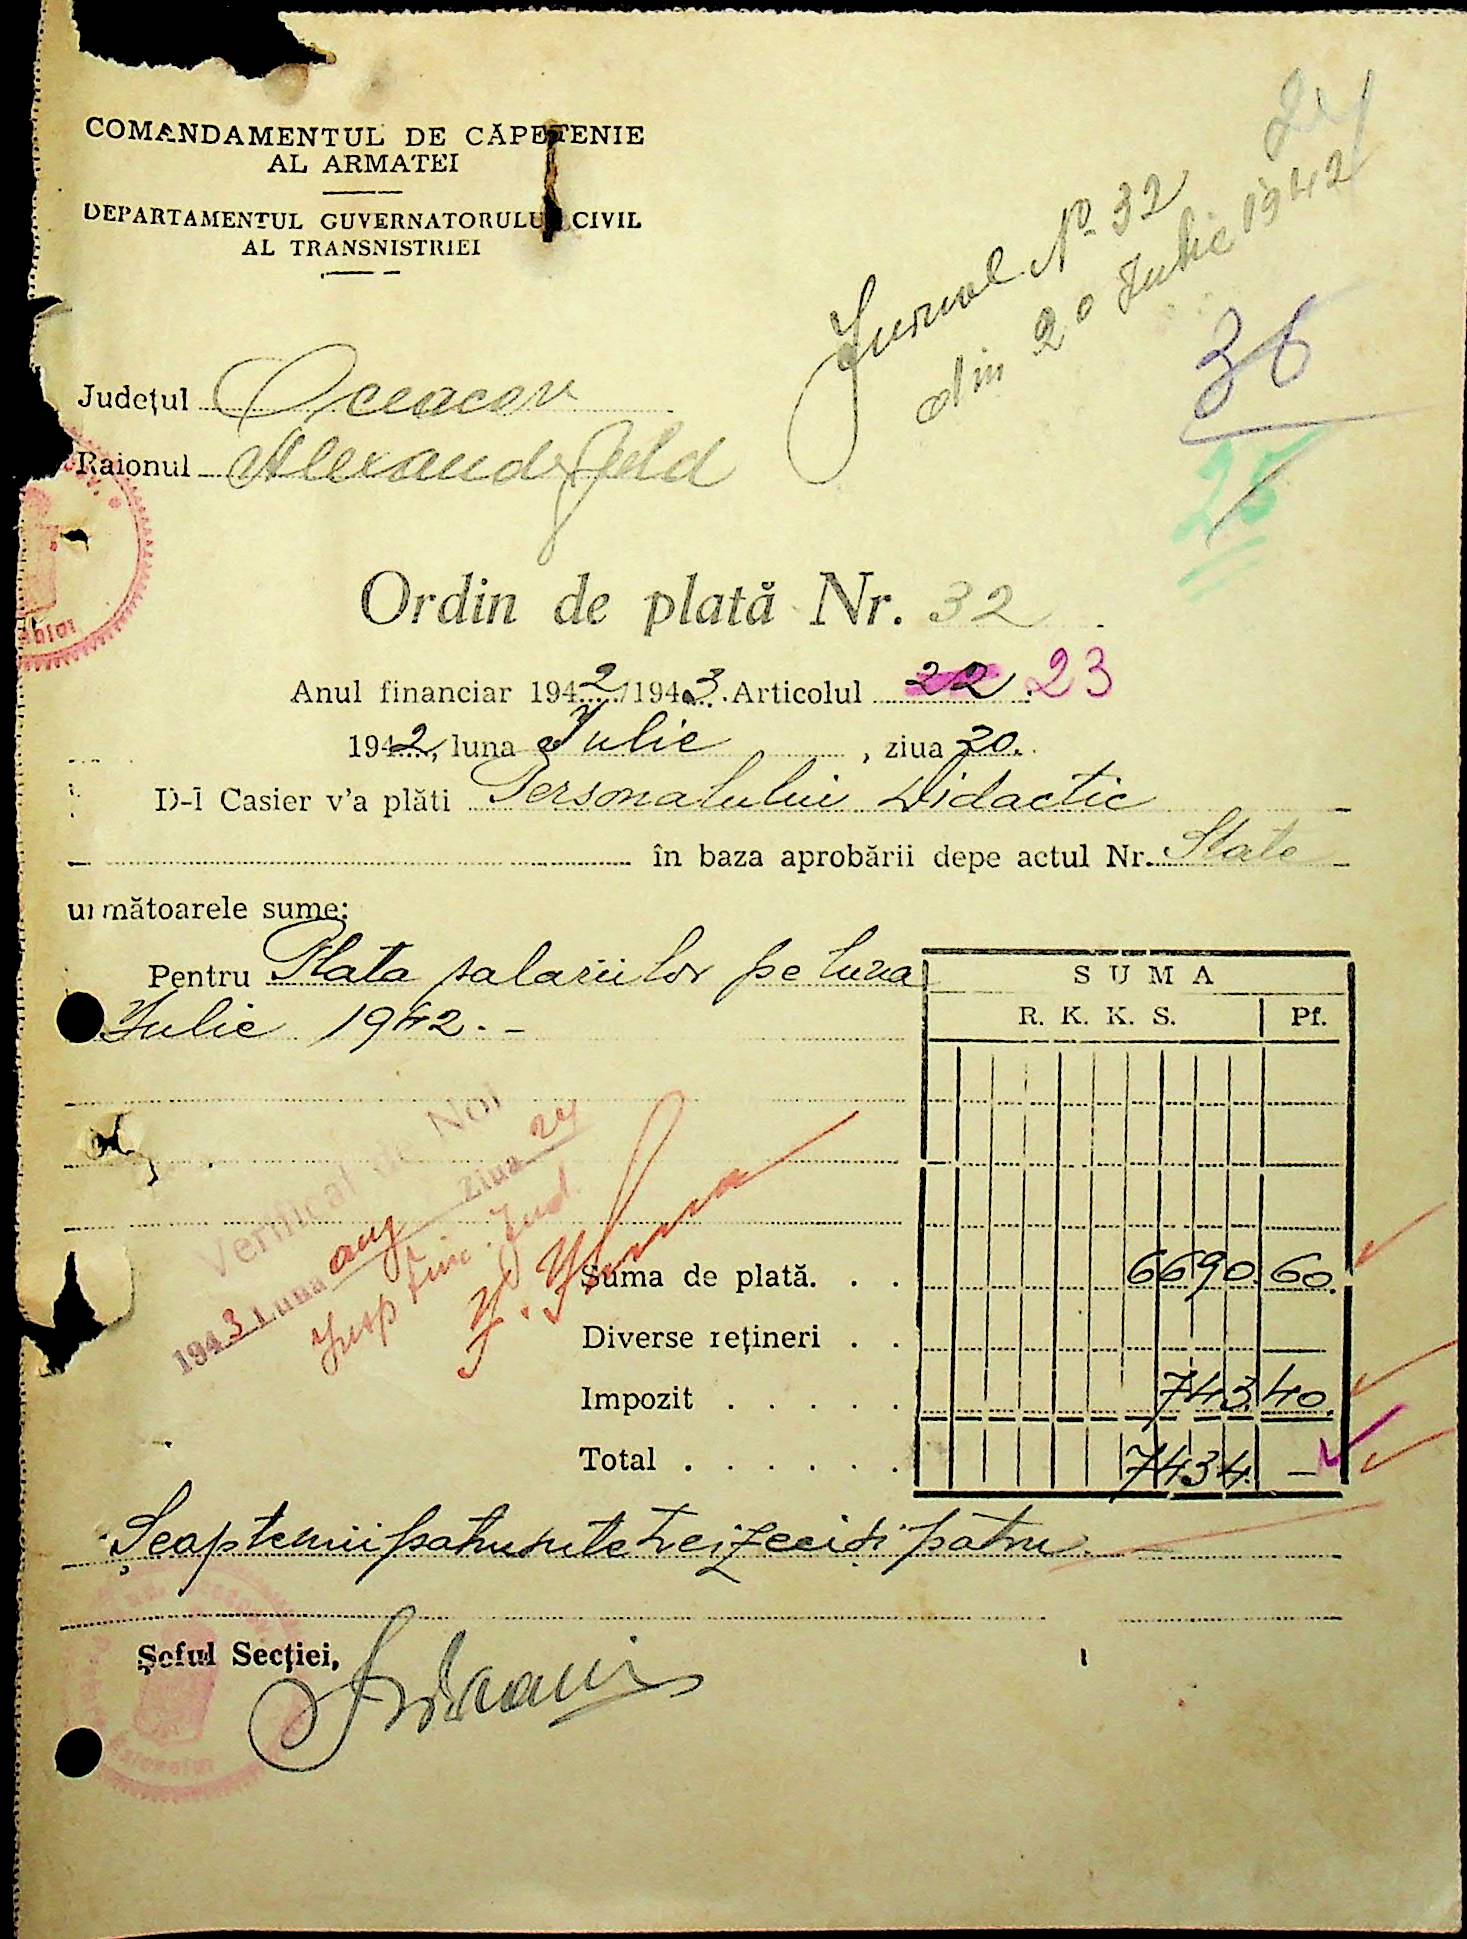 COMANDAMENTUL DE CĂPETENIE
AL ARMATEI
DEPARTAMENTUL GUVERNATORULUI CIVIL
AL TRANSNISTRIEI
24
Jurnal No 32
din 20 Iulie 1942
36
25
Județul Oceacov
Raionul Alexanderfeld
Ordin de plată Nr. 32
Anul financiar 1942/1943. Articolul 22. 23
1942, luna Iulie, ziua 20.
D-l Casier v'a plăti Personalului Didactic
în baza aprobării depe actul Nr. State
următoarele sume:
Pentru Plata salariilor pe luna
Iulie 1942.-
SUMA
R. K. K. S. Pf.
Verificat de Noi
1943 Luna aug ziua 24
Insp Fin. Jud
Suma de plată. . . 6690. 60.
Diverse rețineri . . —
Impozit . . . . . 743. 40.
Total . . . . . . 7434. —
Șeaptemii patrusute treizeciși patru. —
Șeful Secției,